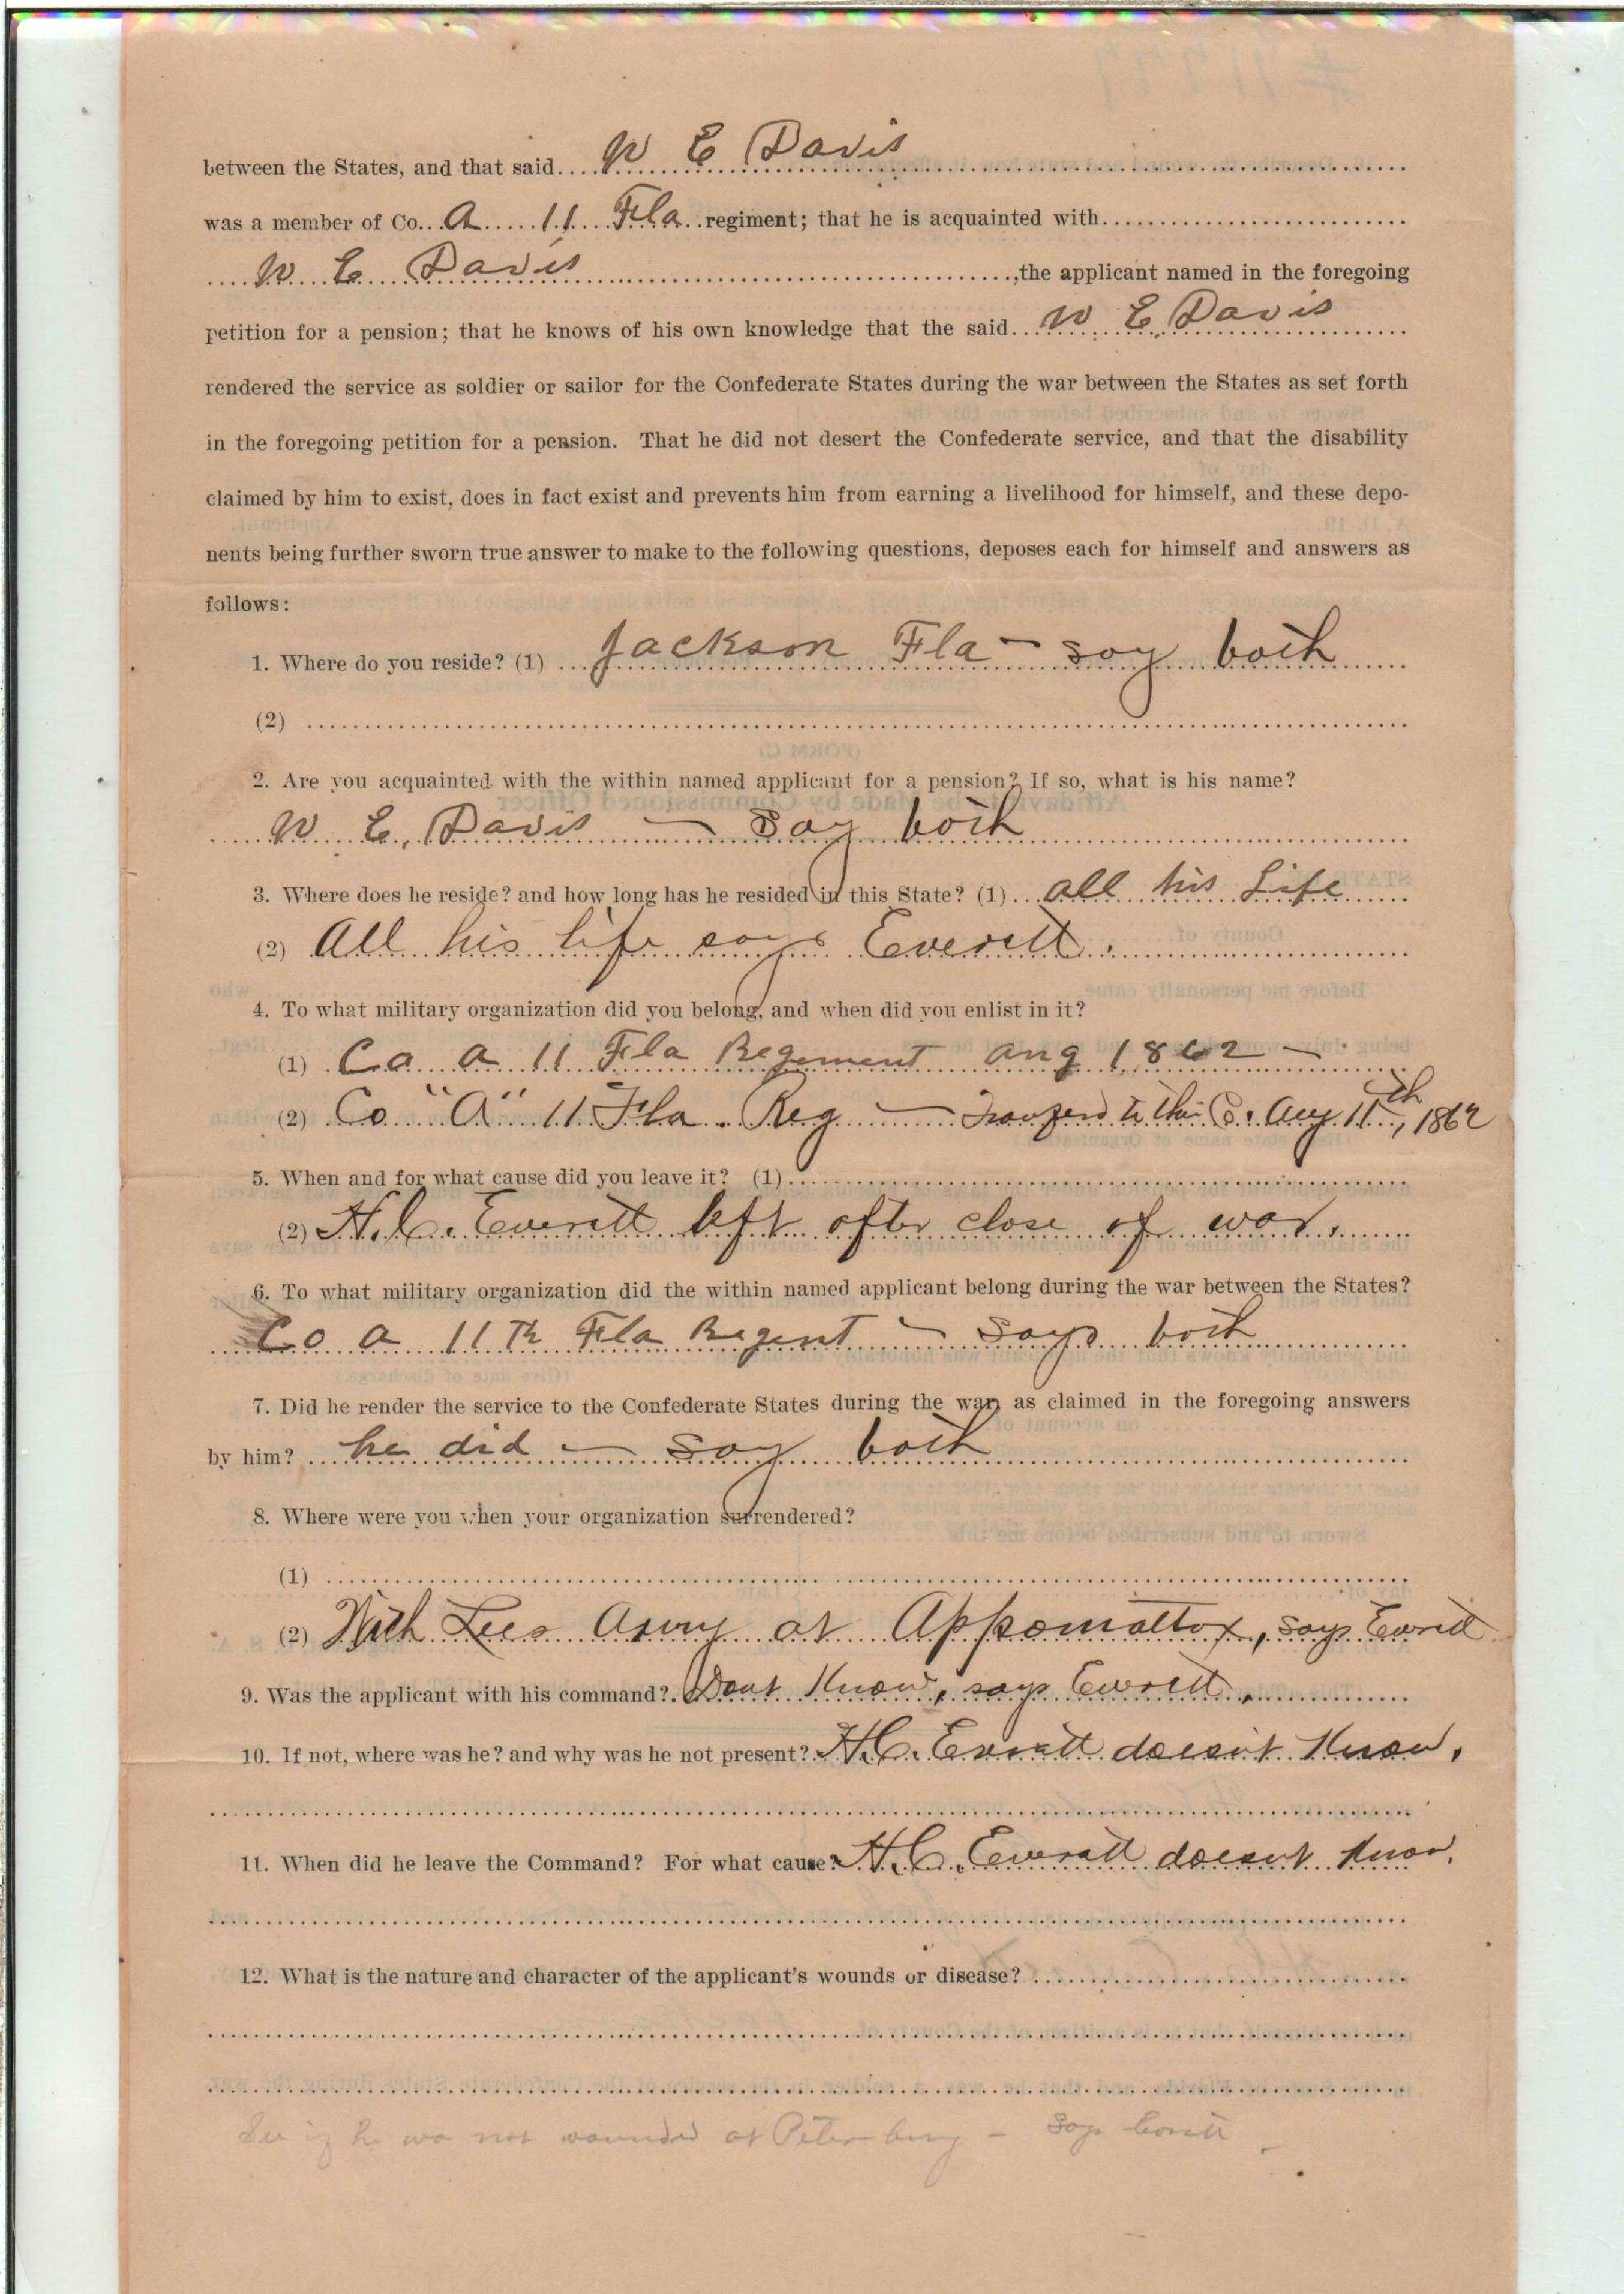 between the States, and that said.... W E Davis
was a member of Co... A ..... 11 .... Fla ..regiment; that he is acquainted with
W. E. Davis ,the applicant named in the foregoing
petition for a pension; that he knows of his own knowledge that the said... W. E. Davis
rendered the service as soldier or sailor for the Confederate States during the war between the States as set forth
in the foregoing petition for a pension. That he did not desert the Confederate service, and that the disability
claimed by him to exist, does in fact exist and prevents him from earning a livelihood for himself, and these depo-
nents being further sworn true answer to make to the following questions, deposes each for himself and answers as
follows:
1. Where do you reside? (1) Jackson Fla — say both
(2)
2. Are you acquainted with the within named applicant for a pension? If so, what is his name?
W. E. Davis — Say both
3. Where does he reside? and how long has he resided in this State? (1) all his Life
(2) All his life says Everett.
4. To what military organization did you belong, and when did you enlist in it?
(1) Co. A 11 Fla Regement Aug 1862 —
(2) Co. "A" 11 Fla. Reg — to this Co. Aug 11th, 1862
5. When and for what cause did you leave it? (1)
(2) H. C. Everett left after close of war.
6. To what military organization did the within named applicant belong during the war between the States?
Co A 11 Th Fla Regent — Says both
7. Did he render the service to the Confederate States during the war as claimed in the foregoing answers
by him? he did — Say both
8. Where were you when your organization surrendered?
(1)
(2) With Lees Army at Appomattox, says Everett
9. Was the applicant with his command? Dont Know, says Everett.
10. If not, where was he? and why was he not present? H. C. Everett doesn't Know.
11. When did he leave the Command? For what cause? H. C. Everett doesent know.
12. What is the nature and character of the applicant's wounds or disease?
See if he was not wounded at Petersburg — Says